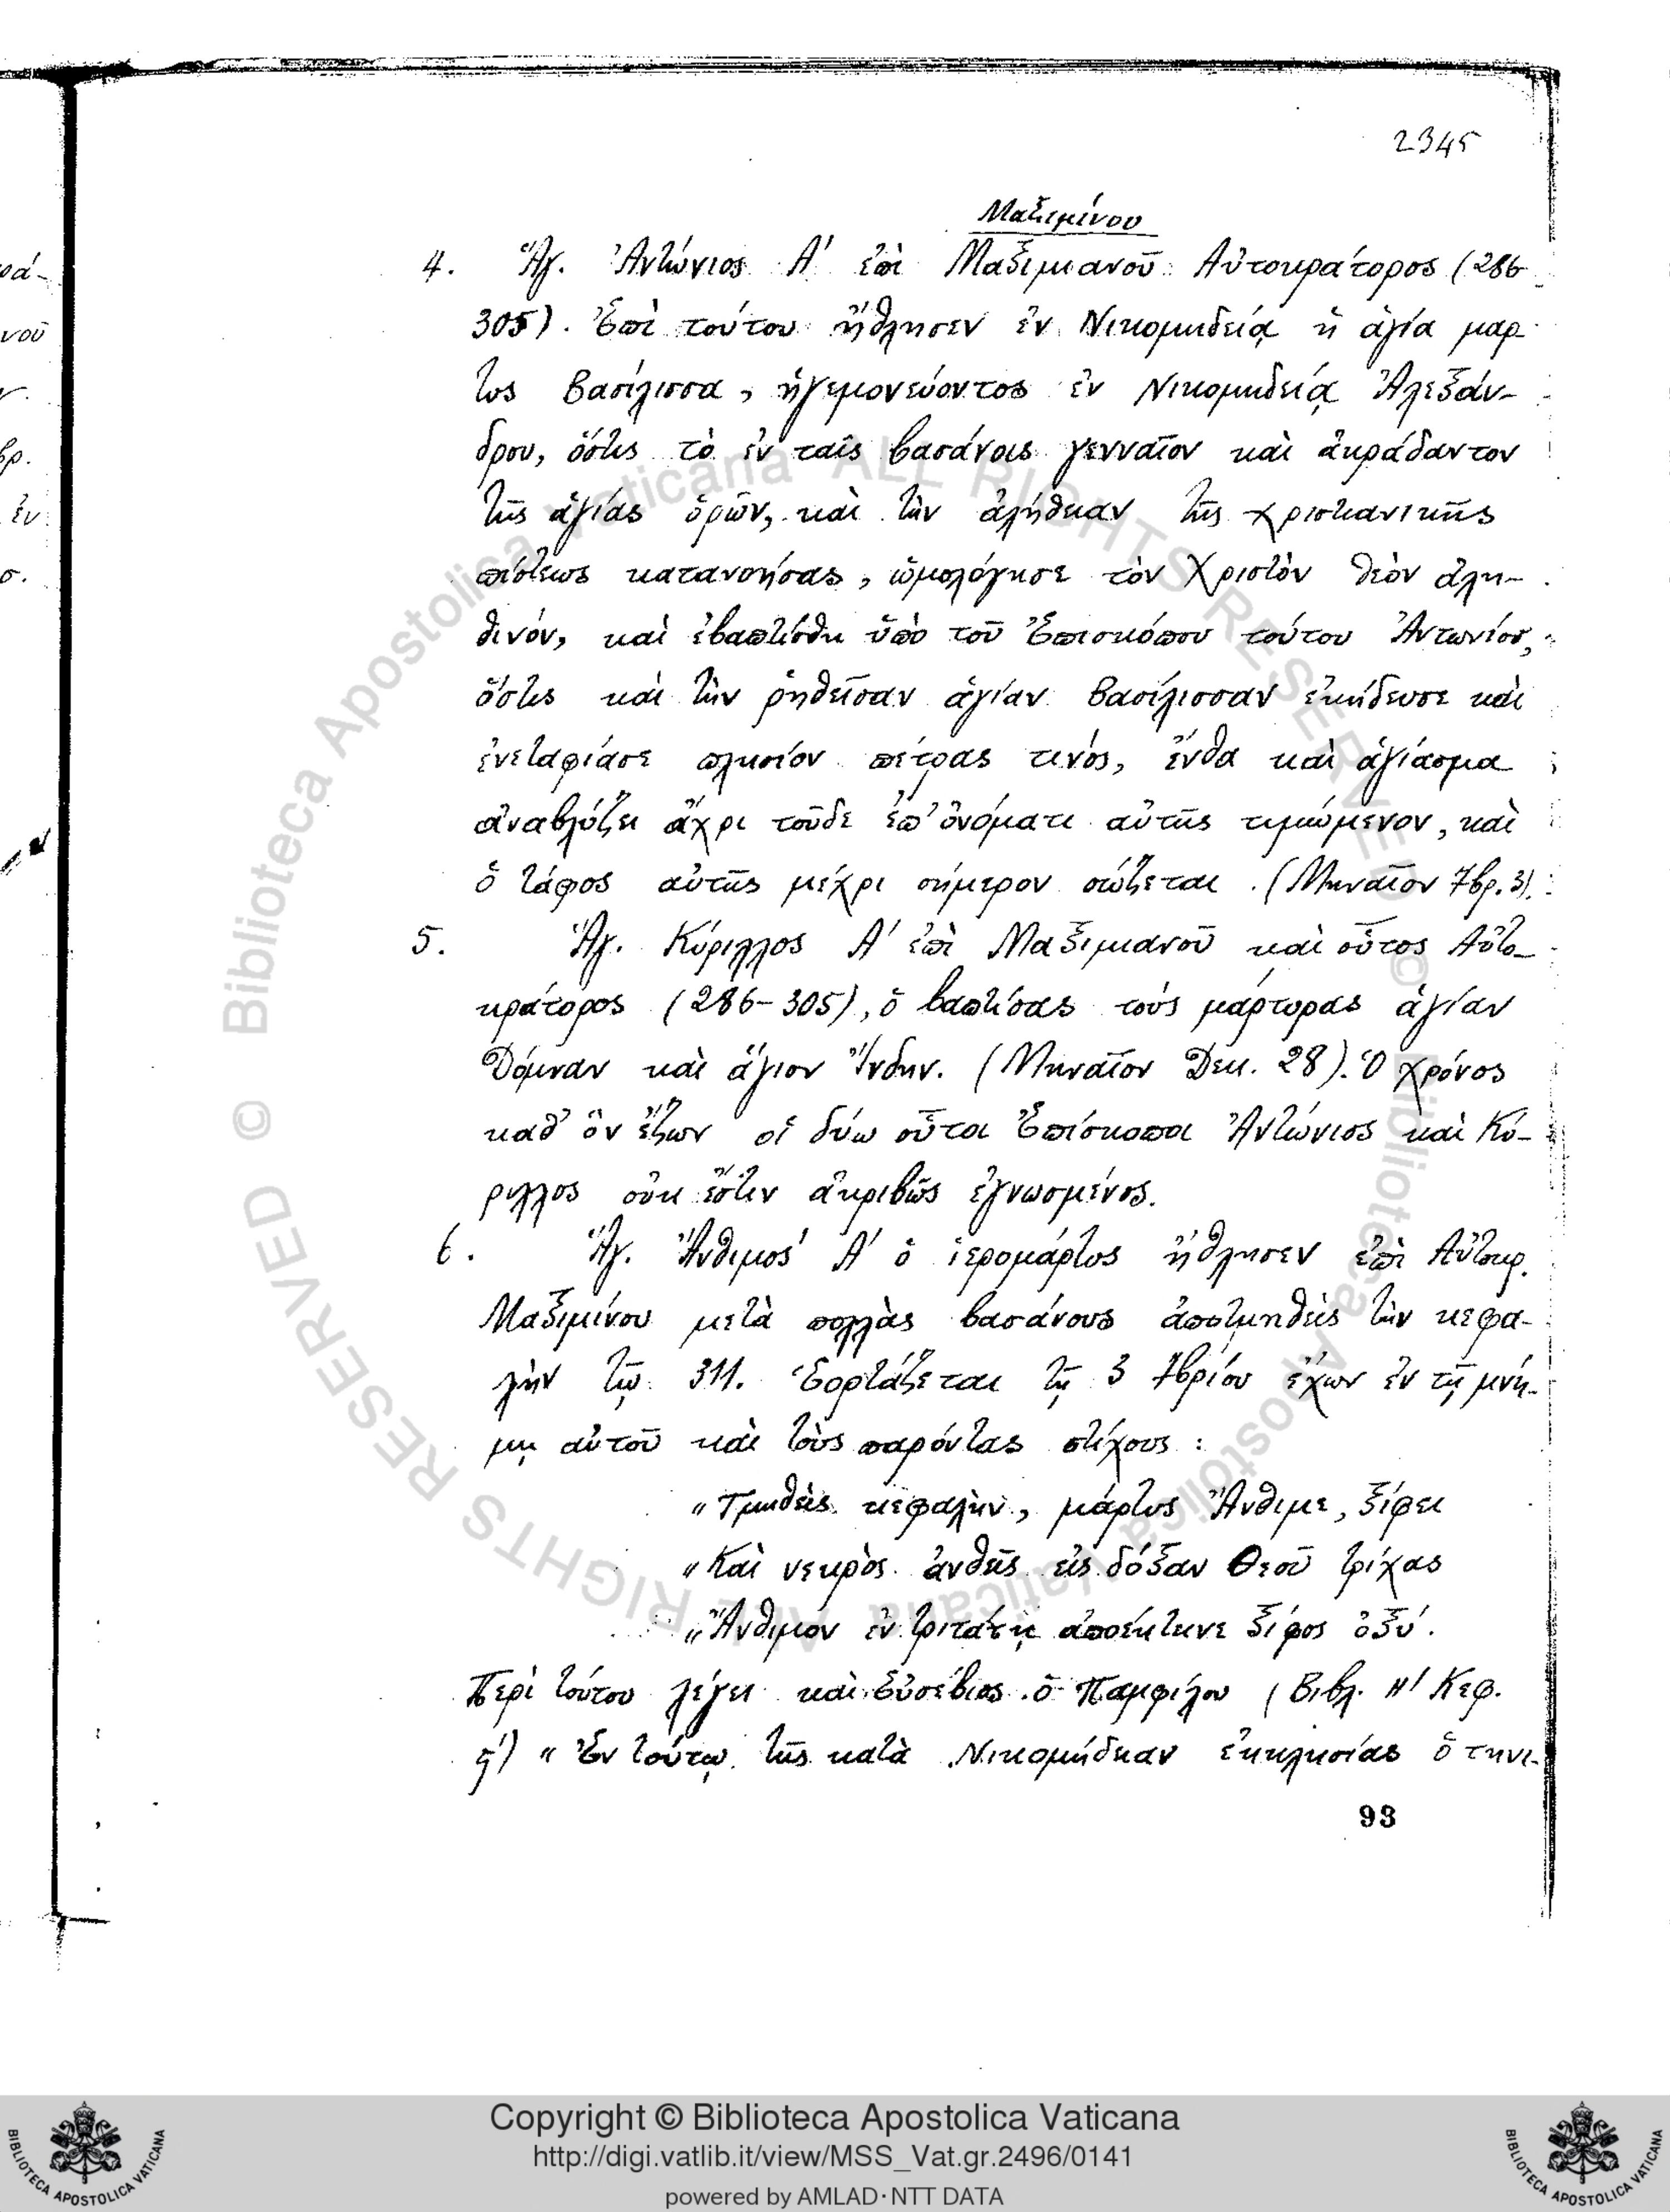 2345
Μαξιμίνου
4. Ἅγ. Ἀντώνιος Α' ἐπὶ Μαξιμιανοῦ Αὐτοκράτορος (286-
305). Ἐπὶ τούτου ἤθλησεν ἐν Νικομηδείᾳ ἡ ἁγία μαρ-
τυς Βασίλισσα, ἡγεμονεύοντος ἐν Νικομηδείᾳ Ἀλεξάν-
δρου, ὅστις τὸ ἐν ταῖς βασάνοις γενναῖον καὶ ἀκράδαντον
τῆς ἁγίας ὁρῶν, καὶ τὴν ἀλήθειαν τῆς χριστιανικῆς
πίστεως κατανοήσας, ὡμολόγησε τὸν Χριστὸν Θεὸν ἀλη-
θινόν, καὶ ἐβαπτίσθη ὑπὸ τοῦ Ἐπισκόπου τούτου Ἀντωνίου,
ὅστις καὶ τὴν ῥηθεῖσαν ἁγίαν Βασίλισσαν ἐκήδευσε καὶ
ἐνεταφίασε πλησίον πέτρας τινός, ἔνθα καὶ ἁγίασμα
ἀναβλύζει ἄχρι τοῦδε ἐπ' ὀνόματι αὐτῆς τιμώμενον, καὶ
ὁ τάφος αὐτῆς μέχρι σήμερον σώζεται. (Μηναῖον 7βρ. 3).
5. Ἅγ. Κύριλλος Α' ἐπὶ Μαξιμιανοῦ καὶ οὗτος Αὐτο-
κράτορος (286-305), ὁ βαπτίσας τοὺς μάρτυρας ἁγίαν
Δόμναν καὶ ἅγιον Ἴνδην. (Μηναῖον Δεκ. 28). Ὁ χρόνος
καθ' ὃν ἔζων οἱ δύω οὗτοι Ἐπίσκοποι Ἀντώνιος καὶ Κύ-
ριλλος οὐκ ἔστιν ἀκριβῶς ἐγνωσμένος.
6. Ἅγ. Ἄνθιμος Α' ὁ ἱερομάρτυς ἤθλησεν ἐπὶ Αὐτοκρ.
Μαξιμίνου μετὰ πολλὰς βασάνους ἀποτμηθεὶς τὴν κεφα-
λὴν τῷ 311. Ἑορτάζεται τῇ 3 7βρίου ἔχων ἐν τῇ μνή-
μῃ αὐτοῦ καὶ τοὺς παρόντας στίχους:
"Τμηθεὶς κεφαλὴν, μάρτυς Ἄνθιμε, ξίφει
"Καὶ νεκρὸς ἀνθεῖς εἰς δόξαν Θεοῦ τρίχας
"Ἄνθιμον ἐν τριτάτῃ ἀπέκτεινε ξίφος ὀξύ.
Περὶ τούτου λέγει καὶ Εὐσέβιος ὁ Παμφίλου (Βιβλ. Η' Κεφ.
ϛ') "Ἐν τούτῳ τῆς κατὰ Νικομήδειαν ἐκκλησίας ὁ τηνι-
93
Copyright © Biblioteca Apostolica Vaticana
http://digi.vatlib.it/view/MSS_Vat.gr.2496/0141
powered by AMLAD·NTT DATA